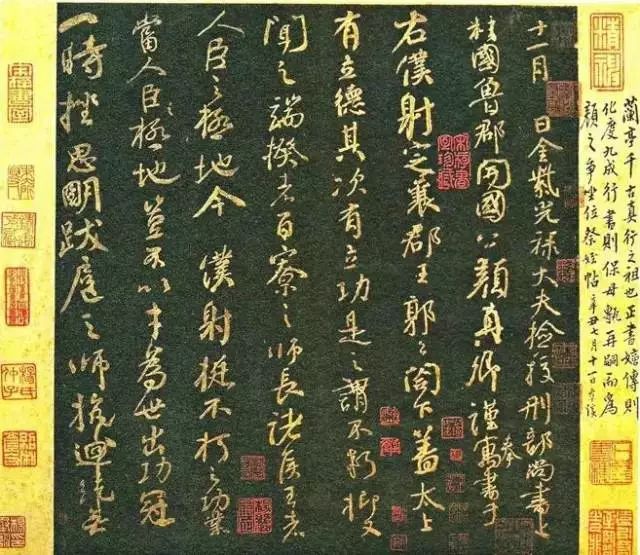 蘭亭千古真行之祖也正書嬗傳則
化度九成行書則保母甎再嗣而為
顏之争坐位祭姪帖 辛丑七月十一日
十一月 日金紫光祿大夫檢校刑部尚書上
柱國魯郡開國公顏真卿謹奉寓書于
右僕射定襄郡王郭公閣下蓋太上
有立德其次有立功是之謂不朽抑又
聞之端揆者百寮之師長諸侯王者
人臣之極地今 僕射挺不朽之功業
當人臣之極地豈不以才為世出功冠
一時挫思明跋扈之師抗迴紇無